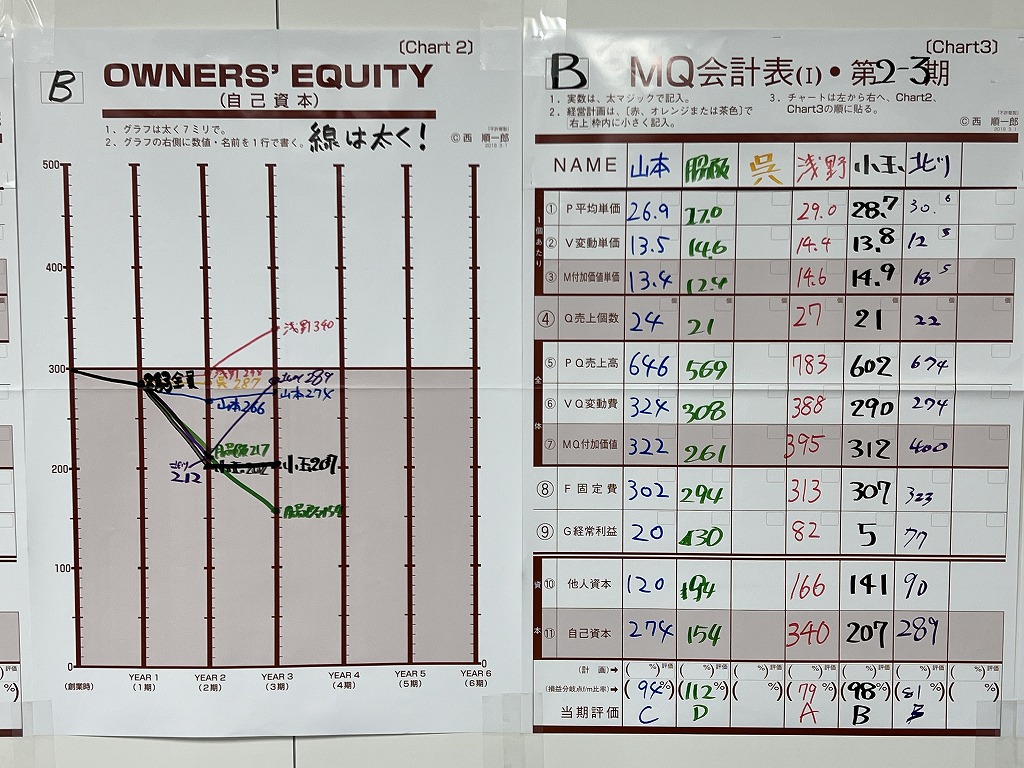 〔Chart 2〕
B
OWNERS' EQUITY
(自己資本)
1．グラフは太く7ミリで。
2．グラフの右側に数値・名前を1行で書く。
線は太く!
Ⓒ西 順一郎
500
400
300
200
100
0
0
浅野 340
283全員
呉 287
北川 289
山本 274
山本 266
217
小玉 207
212
(創業時)
YEAR 1
(1期)
YEAR 2
(2期)
YEAR 3
(3期)
YEAR 4
(4期)
YEAR 5
(5期)
YEAR 6
(6期)
〔Chart3〕
B MQ会計表(I)・第2-3期
1．実数は、太マジックで記入。
2．経営計画は、〔赤、オレンジまたは茶色〕で
右上枠内に小さく記入。
3．チャートは左から右へ、Chart2、
Chart3の順に貼る。
Ⓒ西 順一郎
NAME 山本 呉 浅野 小玉 北川
1個あたり
① P平均単価 26.9 27.0 29.0 28.7 30.6
② V変動単価 13.5 14.6 14.4 13.8 12.5
③ M付加価値単価 13.4 12.4 14.6 14.9 18.5
④ Q売上個数 24 21 27 21 22
全体
⑤ PQ売上高 646 569 783 602 674
⑥ VQ変動費 324 308 388 290 274
⑦ MQ付加価値 322 261 395 312 400
⑧ F固定費 302 294 313 307 323
⑨ G経常利益 20 82 5 77
資本
⑩ 他人資本 120 194 166 141 90
⑪ 自己資本 274 154 340 207 289
(計 画)➡ ( %)評価 ( %)評価 ( %)評価 ( %)評価 ( %)評価 ( %)評価 ( %)評価
(損益分岐点f/m比率)➡ (94%) (112%) ( %) (79%) (98%) (81%) ( %)
当期評価 C D A B B